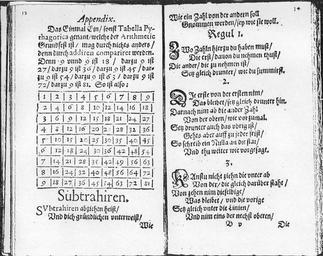 12
Appendix.
Das Einmal Eins/ sonst Tabella Py-
thagorica genant/welche der Arithmetic
Grundfest ist/ mag durch nichts anders/
denn durch addiren compariret werden.
Denn 9 vnnd 9 ist 18 / darzu 9 ist
27 / darzu 9 ist 36 / darzu 9 ist 45 / dar-
zu 9 ist 54 / darzu 9 ist 63 / darzu 9 ist
72 / darzu 9 ist 81. So ist also:
1 2 3 4 5 6 7 8 9
2 4 6 8 10 12 14 16 18
3 6 9 12 15 18 21 24 27
4 8 12 16 20 24 28 32 36
5 10 15 20 25 30 35 40 45
6 12 18 24 30 36 42 48 54
7 14 21 28 35 42 49 56 63
8 16 24 32 40 48 56 64 72
9 18 27 36 45 54 63 72 81
Subtrahiren.
SVbtrahiren abziehen heist/
Vnd dich gründlichen vnterweist/
Wie
Wie ein Zahl von der andern soll
Genommen werden/
Regul 1.
Zwo Zahln hierzu du haben must/
Die erst/ davon du nehmen thust/
Die ander/ die zu nehmen ist/
Setz gleich drunter/ wie du summirest.
2.
Die erste von der ersten nimm/
Das bleibet/ setz gleich drunter hin.
Darnach nim ab die ander Zahl
Von der obern/ wie vor zumal.
Setz drunter auch das vbrig ist/
Gehts aber auff zu jeder frist/
So schreib ein Nulla an der stat/
Vnd thu weiter wie vorgesagt.
3.
Kanstu nicht ziehn die vnter ab
Von der/ die gleich darüber
Von zehen nim dieselbige/
Was bleibet/ vnd die vorige
Setz gleich vnter die Linien/
Vnd nim eins der nechst obern/
B v
Die